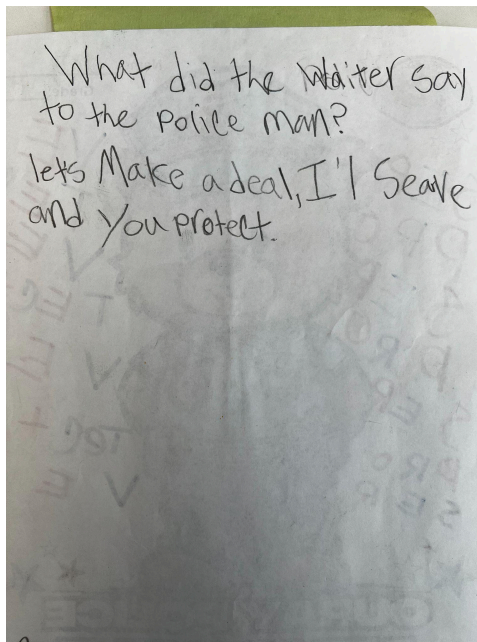 What did the Waiter say
to the police man?
lets Make a deal, I'l Seave
and you protect.